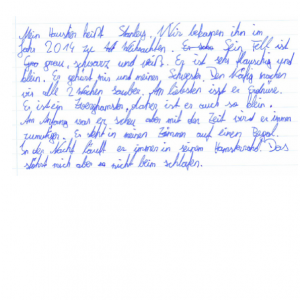 Mein Hamster heißt Stanley. Wir bekamen ihn im
Jahr 2014 zu Weihnachten. Sein Fell ist
grau, schwarz und weiß. Er ist sehr flauschig und
klein. Er gehört mir und meiner Schwester. Den Käfig machen
wir alle 2 Wochen sauber. Am liebsten isst er Erdnüsse.
Er ist ein Zwerghamster, daher ist er auch so klein.
Am Anfang war er scheu aber mit der Zeit wird er immer
zutraulicher. Er steht in meinem Zimmer auf einem Regal.
In der Nacht läuft er immer in seinem Hamsterrad. Das
stört mich aber nicht beim schlafen.